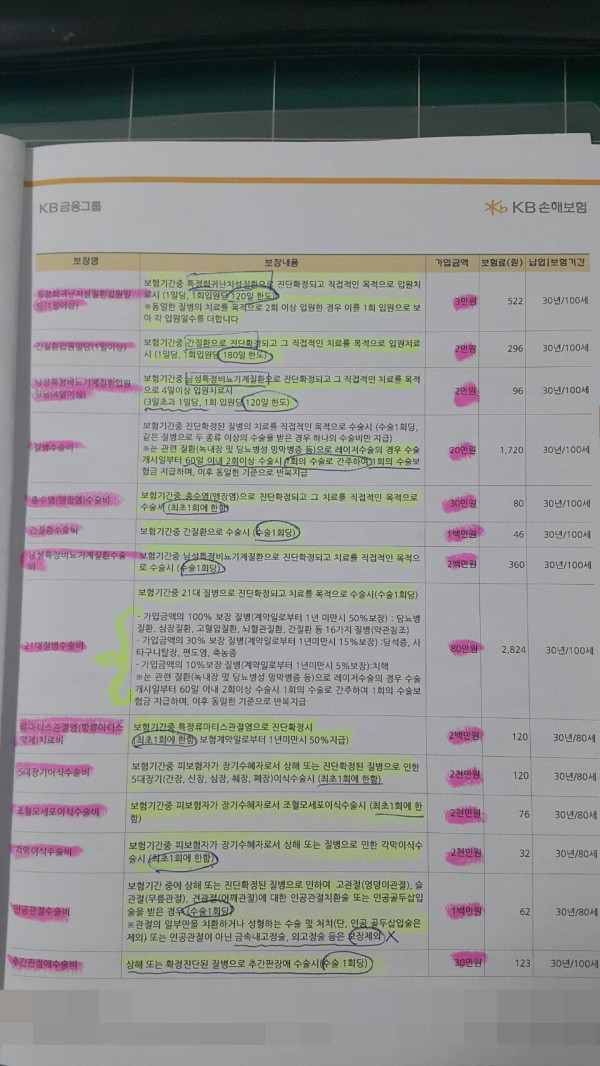 KB금융그룹
KB손해보험
보장명 보장내용 가입금액 보험료(원) 납입|보험기간
특정희귀난치성질환입원일당(1일이상)
보험기간중 특정희귀난치성질환으로 진단확정되고 직접적인 목적으로 입원치
료시 (1일당, 1회입원당 120일 한도)
※동일한 질병의 치료를 목적으로 2회 이상 입원한 경우 이를 1회 입원으로 보
아 각 입원일수를 더합니다
3만원 522 30년/100세
간질환입원일당(1일이상)
보험기간중 간질환으로 진단확정되고 그 직접적인 치료를 목적으로 입원치료
시 (1일당, 1회입원당 180일 한도)
2만원 296 30년/100세
남성특정비뇨기계질환입원
일당(4일이상)
보험기간중 남성특정비뇨기계질환으로 진단확정되고 치료를 직접적인 목적
으로 4일이상 입원치료시
(3일초과 1일당, 1회 입원당 120일 한도)
2만원 96 30년/100세
질병수술비
보험기간중 진단확정된 질병의 치료를 직접적인 목적으로 수술시 (수술1회당,
같은 질병으로 두 종류 이상의 수술을 받은 경우 하나의 수술비만 지급)
※눈 관련 질환(녹내장 및 당뇨병성 망막병증 등)으로 레이저수술의 경우 수술
개시일부터 60일 이내 2회이상 수술시 1회의 수술로 간주하여 1회의 수술보
험금 지급하며, 이후 동일한 기준으로 반복지급
20만원 1,720 30년/100세
충수염(맹장염)수술비
보험기간중 충수염(맹장염)으로 진단확정되고 그 치료를 직접적인 목적으로
수술시 (최초1회에 한함)
30만원 80 30년/100세
간질환수술비
보험기간중 간질환으로 수술시 (수술1회당)
1백만원 46 30년/100세
남성특정비뇨기계질환수술
비
보험기간중 남성특정비뇨기계질환으로 진단확정되고 치료를 직접적인 목적으
로 수술시 (수술1회당)
2백만원 360 30년/100세
21대질병수술비
보험기간중 21대 질병으로 진단확정되고 치료를 목적으로 수술시(수술1회당)
- 가입금액의 100% 보장 질병(계약일로부터 1년 미만시 50%보장) : 당뇨병
질환, 심장질환, 고혈압질환, 뇌혈관질환, 간질환 등 16가지 질병(약관참조)
- 가입금액의 30% 보장 질병(계약일로부터 1년미만시 15%보장) :담석증, 사
타구니탈장, 편도염, 축농증
- 가입금액의 10%보장 질병(계약일로부터 1년미만시 5%보장) :치핵
※눈 관련 질환(녹내장 및 당뇨병성 망막병증 등)으로 레이저수술의 경우 수술
개시일부터 60일 이내 2회이상 수술시 1회의 수술로 간주하여 1회의 수술보
험금 지급하며, 이후 동일한 기준으로 반복지급
80만원 2,824 30년/100세
류마티스관절염(항류마티스
약제)치료비
보험기간중 특정류마티스관절염으로 진단확정시
(최초1회에 한함, 보험계약일로부터 1년미만시 50%지급)
2백만원 120 30년/80세
5대장기이식수술비
보험기간중 피보험자가 장기수혜자로서 상해 또는 진단확정된 질병으로 인한
5대장기(간장, 신장, 심장, 췌장, 폐장)이식수술시 (최초1회에 한함)
2천만원 120 30년/80세
조혈모세포이식수술비
보험기간중 피보험자가 장기수혜자로서 조혈모세포이식수술시 (최초1회에 한
함)
2천만원 76 30년/80세
각막이식수술비
보험기간중 피보험자가 장기수혜자로서 상해 또는 질병으로 인한 각막이식수
술시 (최초1회에 한함)
2천만원 32 30년/80세
인공관절수술비
보험기간 중에 상해 또는 진단확정된 질병으로 인하여 고관절(엉덩이관절), 슬
관절(무릎관절), 견관절(어깨관절)에 대한 인공관절치환술 또는 인공골두삽입
술을 받은 경우 (수술1회당)
※관절의 일부만을 치환하거나 성형하는 수술 및 처치(단, 인공 골두삽입술은
제외) 또는 인공관절이 아닌 금속내고정술, 외고정술 등은 보장제외 X
1백만원 62 30년/80세
추간판장애수술비
상해 또는 확정진단된 질병으로 추간판장애 수술시 (수술 1회당)
30만원 123 30년/100세